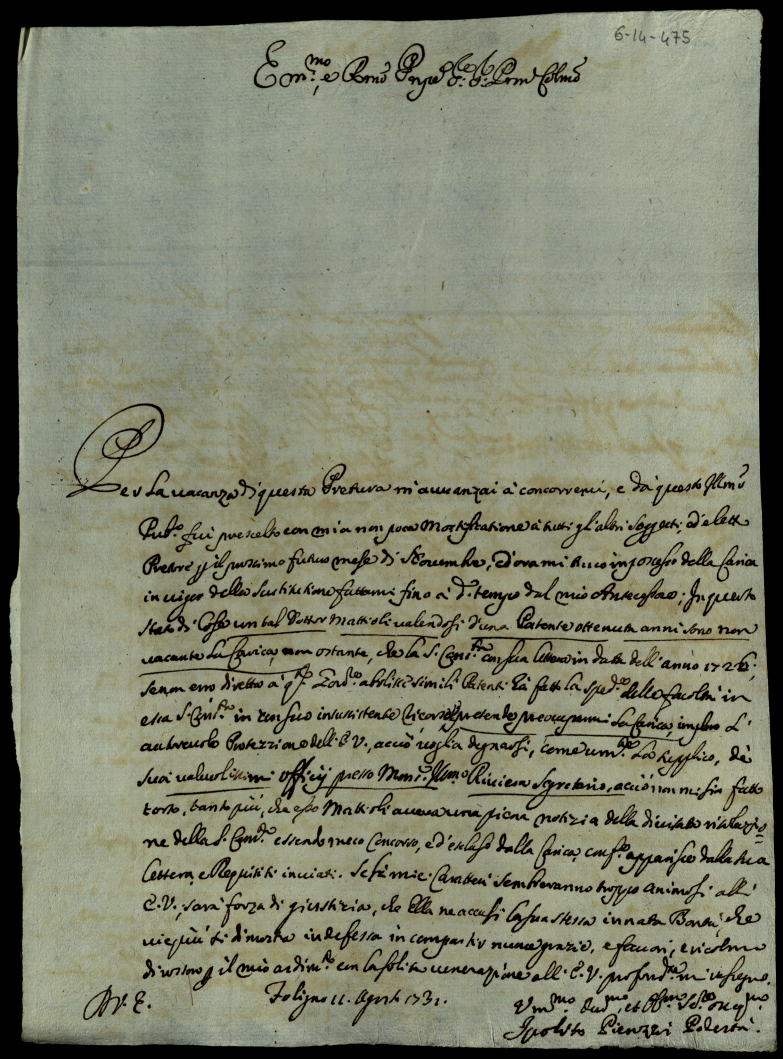 6-14-475
Em.mo e Rmõ Prnpe
Per la vacanza di questa Pretura m'auuanzai à concorrerui, e dà questo Illmõ
Pub.co fui prescelto con mia non poca Mortificatione à tutti gl'altri Soggetti, ed eletto
Pretore il prossimo futuro mese di 9bouembre, ed ora mi truo in possesso della Carica
in uigor della Sustitutione fattami fino à d.o tempo dal mio Antecessore; In questo
Stato di Cose un tal Dottor Mattioli ualendosi d'una Patente ottenuta anni sono non
uacante la Carica, non ostante, che la S. Cons.ta con sua lettera in data dell'anno 1726,
se non erro diretta à abolisse simili Patenti hà fatto la sped.e delle facoltà in
essa S. Cons.ta in insussistente pretende preoccuparmi la Carica, imploro l'
autreuole Protezzione dell'E.V., acciò uoglia degnarsi, come um.te la supplico, de
suoi ualeuolissimi officij presso Mons.r Illmo Riuiera Segretario, acciò non mi sia fatto
torto, tanto più, che esso Mattioli aueua una piena notizia della diuisata risoluzio=
ne della S. Cons.ta essendo meco Concorso, ed escluso dalla Carica, conf.e apparisce dalla sua
Lettera, e Requisiti inuiati. Se i miei Caratteri sembreranno troppo animosi all'
E.V., sarà forza di giustizia, che Ella ne accusi la sua stessa innata Bontà, che
uie più si dimostra indefessa in compartir nuoue grazie, e fauori, e
il mio ardim.to con la solita uenerazione all'E.V. profond.te m'inchino.
Di V.E.
Foligno 11. Agosto 1731.
Vm.mo diu.mo, et Obl.mo Se.re osseq.mo
Ipolito Pienzeri Podestà.